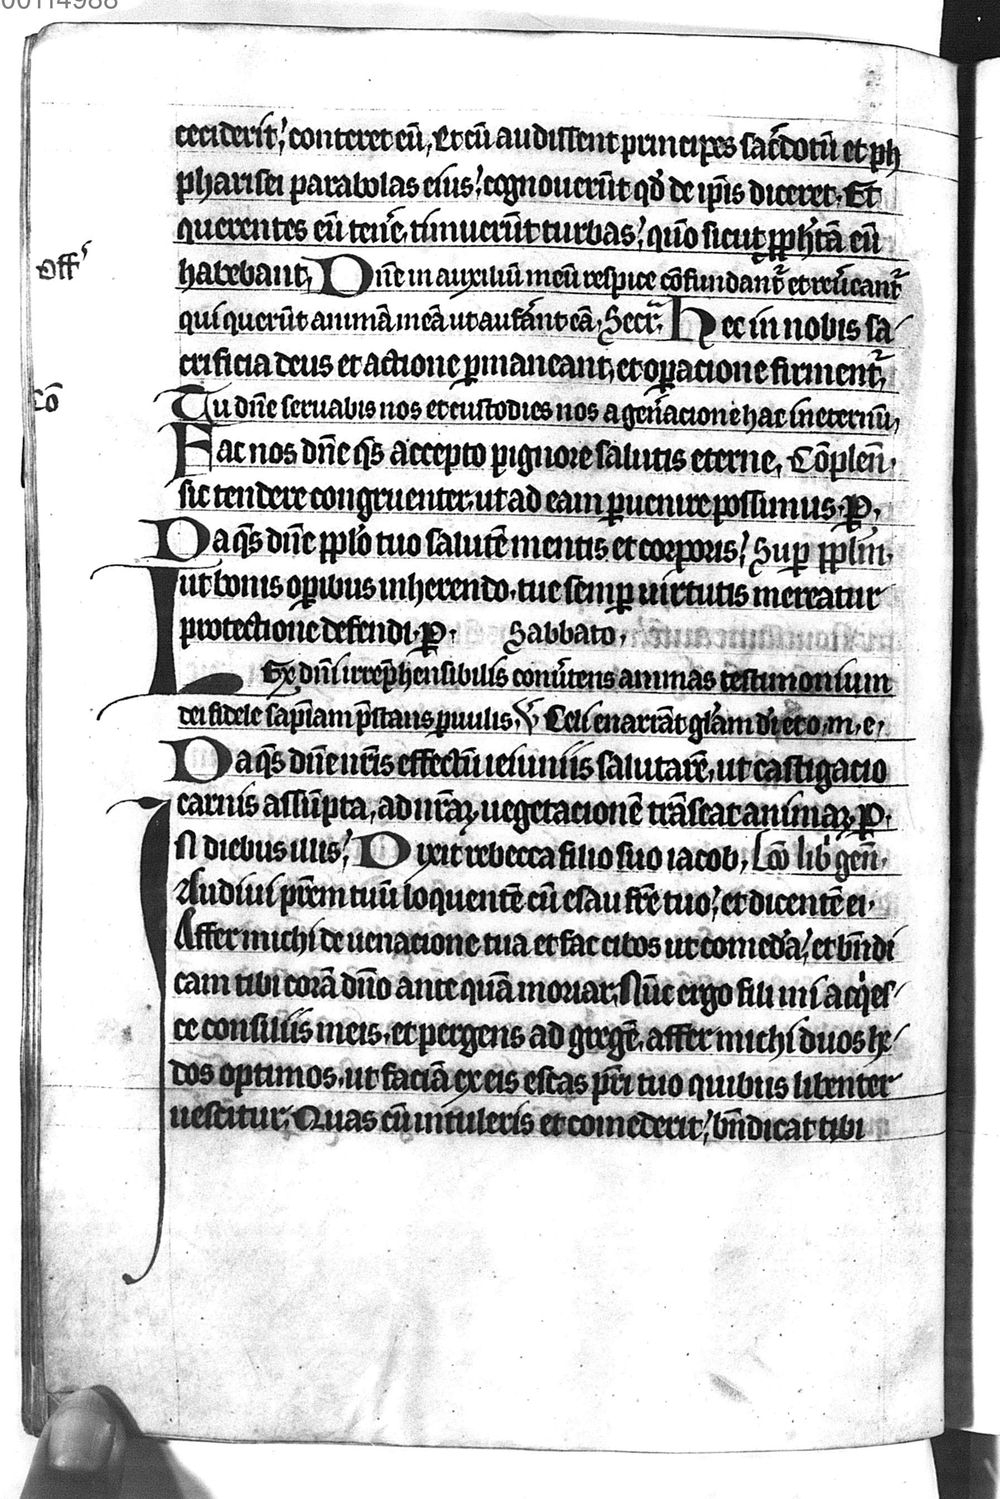 00114988
ceciderit, conteret eū, Et cū audissent principes sac̄dotū et ph
pharisei parabolas eius, cognouerūt qd̄ de ip̄is diceret. Et
querentes eū ten̄e, timuerūt turbas, quō sicut ꝓph̄tā eū
Off
habebant, Dn̄e in auxiliū meū respice cōfundant᷑ et reu̾eant᷑
qui querūt animā meā ut aufānt eā, Secr̄. Hec in nobis sa
crificia deus et actione ꝑmaneant, et oꝑacione firment᷑,
Cō
Tu dn̄e seruabis nos et custodies nos a gen̾acione hac in eternū,
Fac nos dn̄e qs̄ accepto pignore salutis eterne, Cōplen̄.
sic tendere congruenter, ut ad eam ꝑuenire possimus. P.
Da qs̄ dn̄e pplō tuo salutē mentis et corporis, Suꝑ pplm̄.
ut bonis oꝑibus inherendo, tue semꝑ uirtutis mereatur
protectione defendi. P. Sabbato,
Lex dn̄i irrep̄hensibilis conu̾tens animas testimonium
dei fidele sap̄iam p̄stans ꝑuulis, V̾ Celi enarrāt gl̄am dei et o, m, e,
Da qs̄ dn̄e nr̄is effectū ieiuniis salutarē, ut castigacio
carnis assūpta, ad nr̄aꝝ uegetacionē trāseat animaꝝ P.
In diebus illis, Dixit rebecca filio suo iacob, Lc̄o lib̾ gen̄.
Audiui pr̄em tuū loquentē cū esau fr̄e tuo, et dicentē ei.
Affer michi de uenacione tua et fac cibos ut comedā, et bn̄di
cam tibi corā dn̄o ante quā moriar, Nūc ergo fili mi acq̇es
ce consiliis meis, et pergens ad gregē, affer michi duos he
dos optimos, ut faciā ex eis escas pr̄i tuo quibus libenter
uescitur, Quas cū intuleris et comederit, bn̄dicat tibi